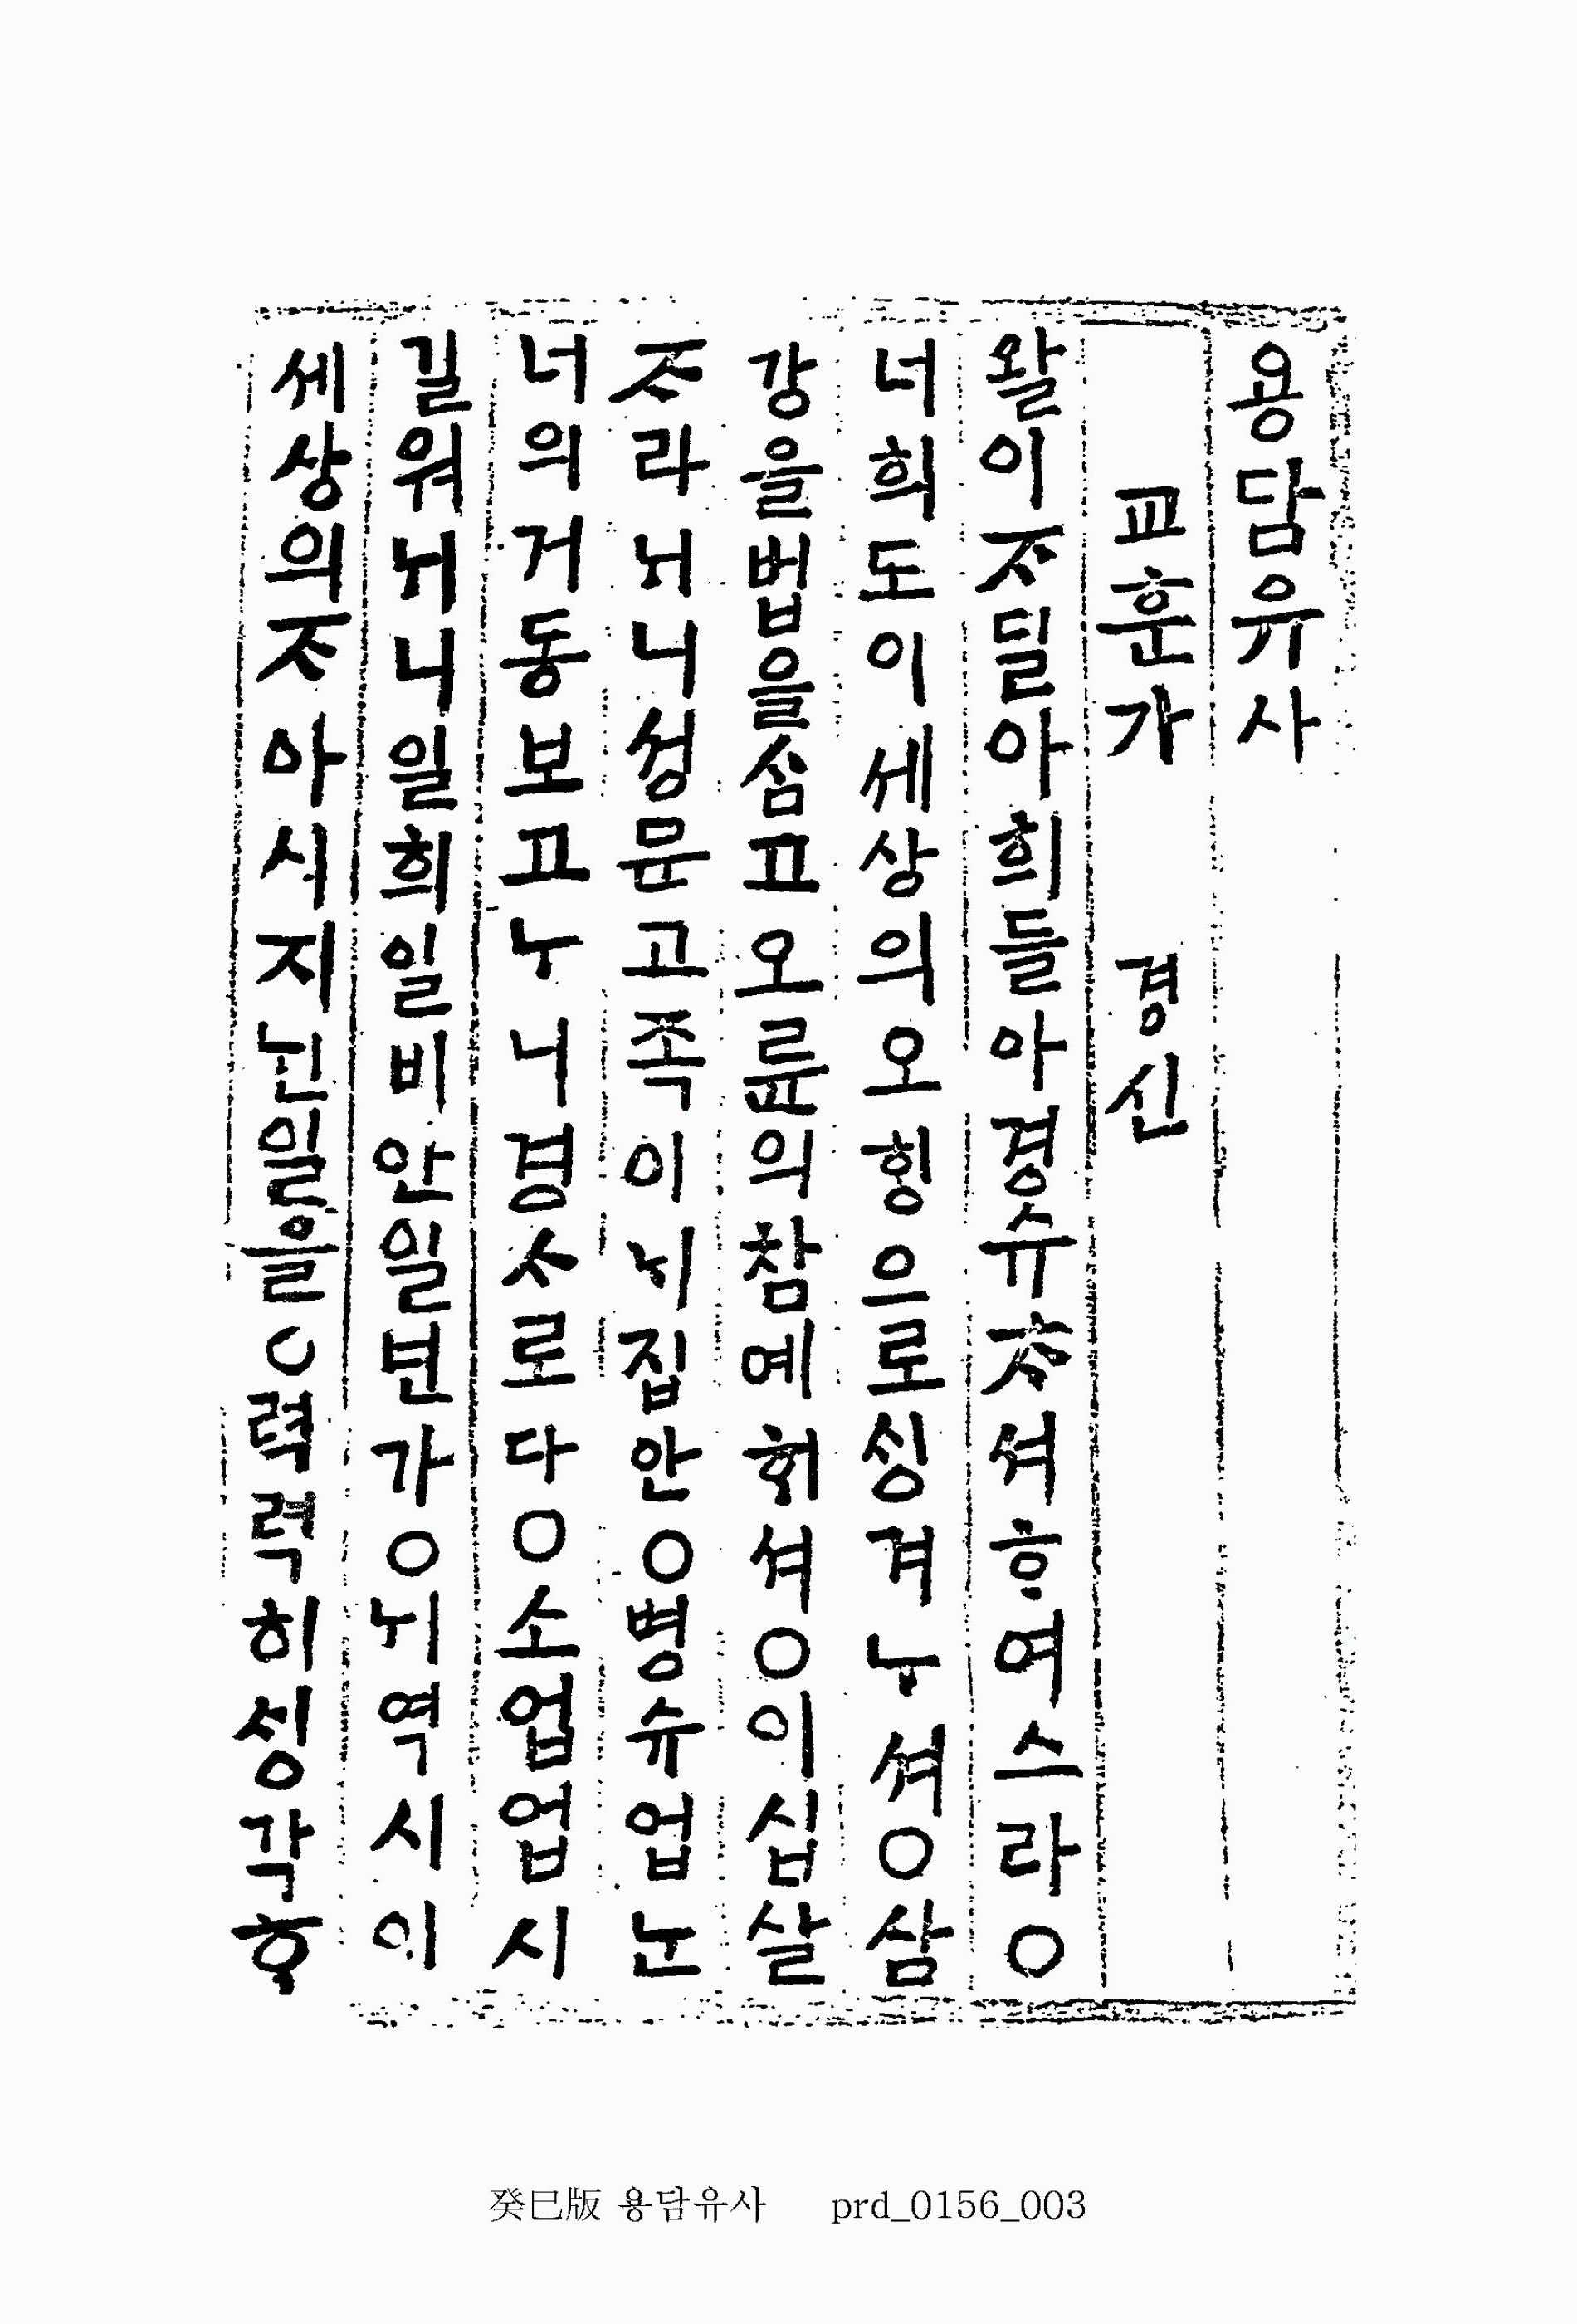 용담유사
교훈가 경신
왈이ᄌᆞ딜아희들아경슈ᄎᆞ셔ᄒᆞ여스라○
너희도이세상의오ᄒᆡᆼ으로ᄉᆡᆼ겨ᄂᆞ셔○삼
강을법을ᄉᆞᆷ고오륜의참예ᄒᆡ셔○이십살
ᄌᆞ라ᄂᆡ니성문고족이ᄂᆡ집안○병슈업ᄂᆞᆫ
너의거동보고ᄂᆞ니경ᄉᆞ로다○소업업시
길워ᄂᆡ니일희일비안일년가○ᄂᆡ역시이
세상의ᄌᆞ아시지ᄂᆡᆫ일을○력력히ᄉᆡᆼ각ᄒᆞ
癸巳版 용담유사 prd_0156_003